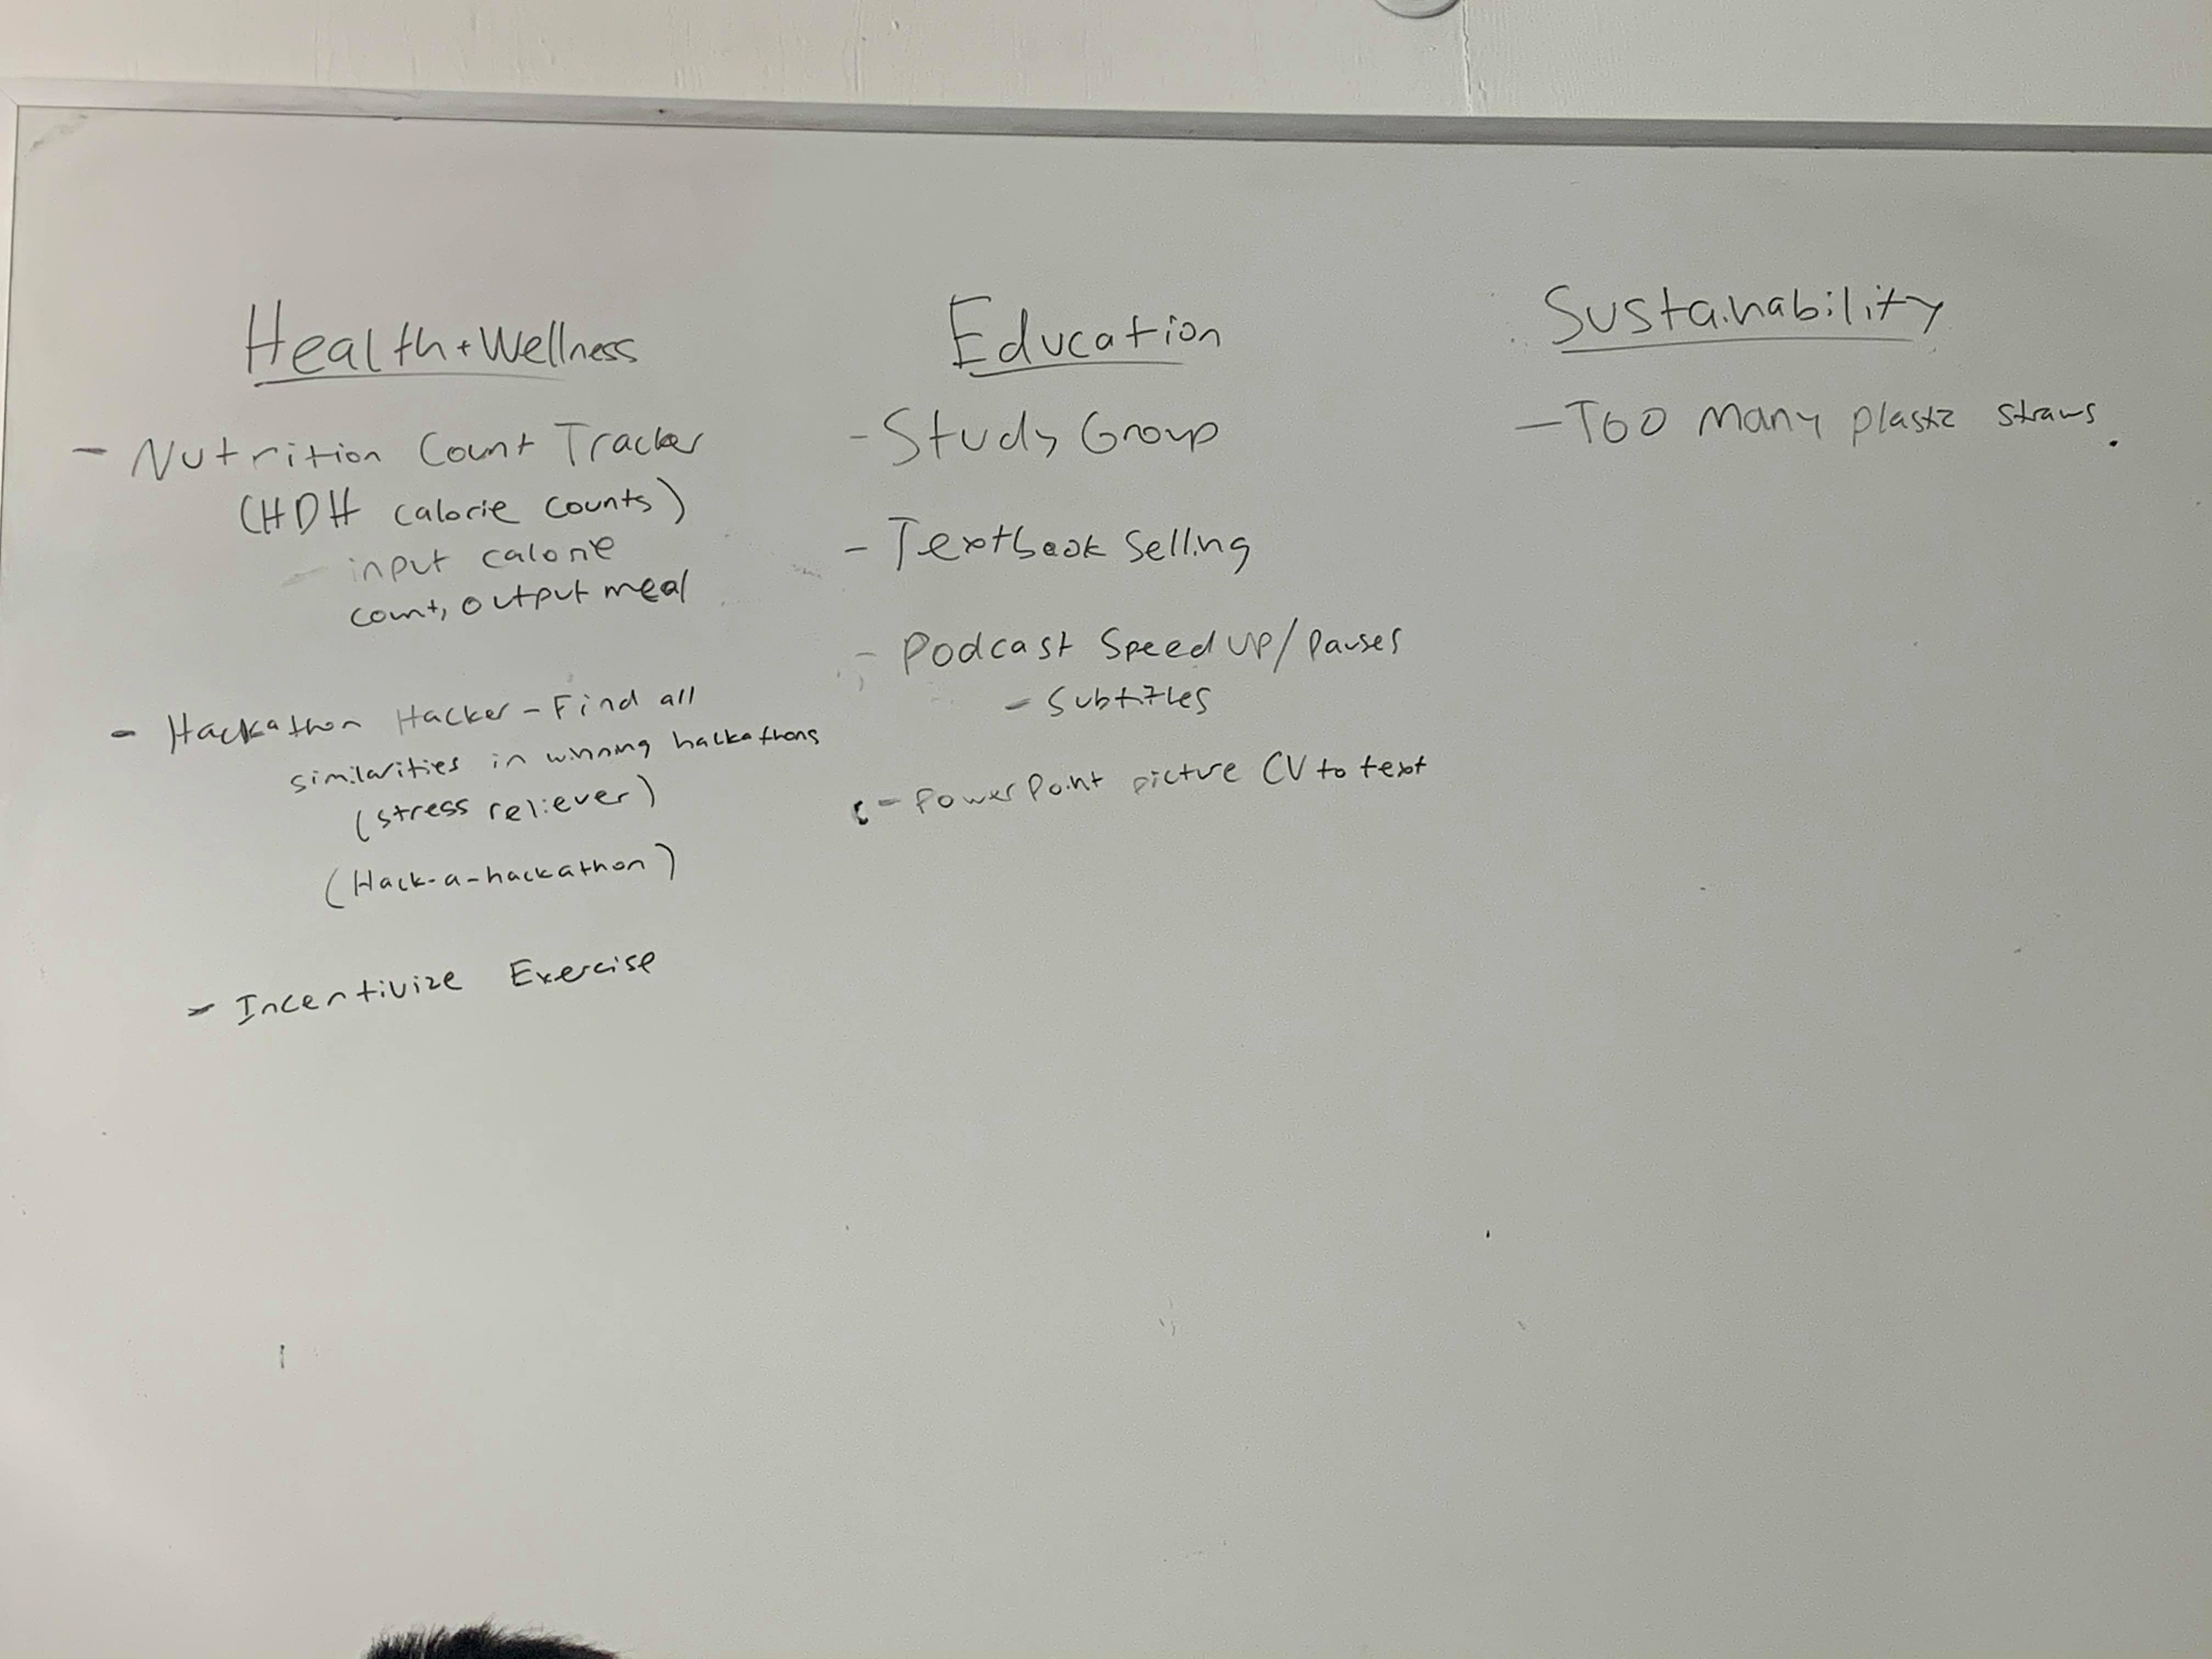 Health + Wellness
- Nutrition Count Tracker
(HDH calorie counts)
- input calorie
count, output meal
- Hackathon Hacker - Find all
similarities in winning hackathons
(stress reliever)
(Hack-a-hackathon)
- Incentivize Exercise
Education
- Study Group
- Textbook Selling
- Podcast Speed up/pauses
- Subtitles
- PowerPoint picture CV to text
Sustainability
- Too many plastic straws.